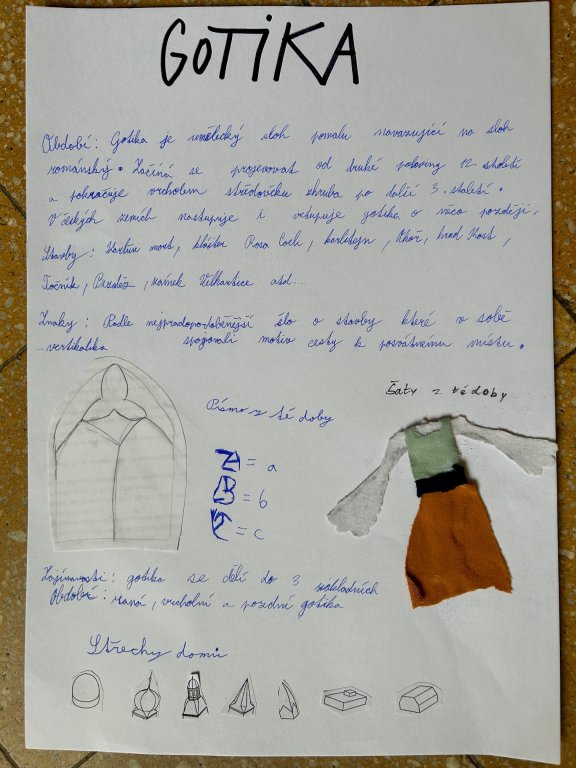 GOTIKA
Období: Gotika je umělecký sloh pomalu navazující na sloh
románský. Začíná se projevovat od druhé poloviny 12. století
a pokračuje vrcholem středověku zhruba po další 3. staletí.
V českých zemích nastupuje i vstupuje gotika o něco později,
Stavby: Karlův most, klášter Rosa Coeli, karlštejn, Okoř, hrad Kost,
Točník, Bezděz, zámek Velhartice atd....
Znaky: Podle nejpradopodobnější šlo o stavby které v sobě
-vertikalika spojovali motiv cesty k posvátnému místu.
Šaty z té doby
Písmo z té doby
A = a
B = b
C = c
Zajímavosti: gotika se dělí do 3 základních
Období: raná, vrcholní a pozdní gotika
Střechy domů